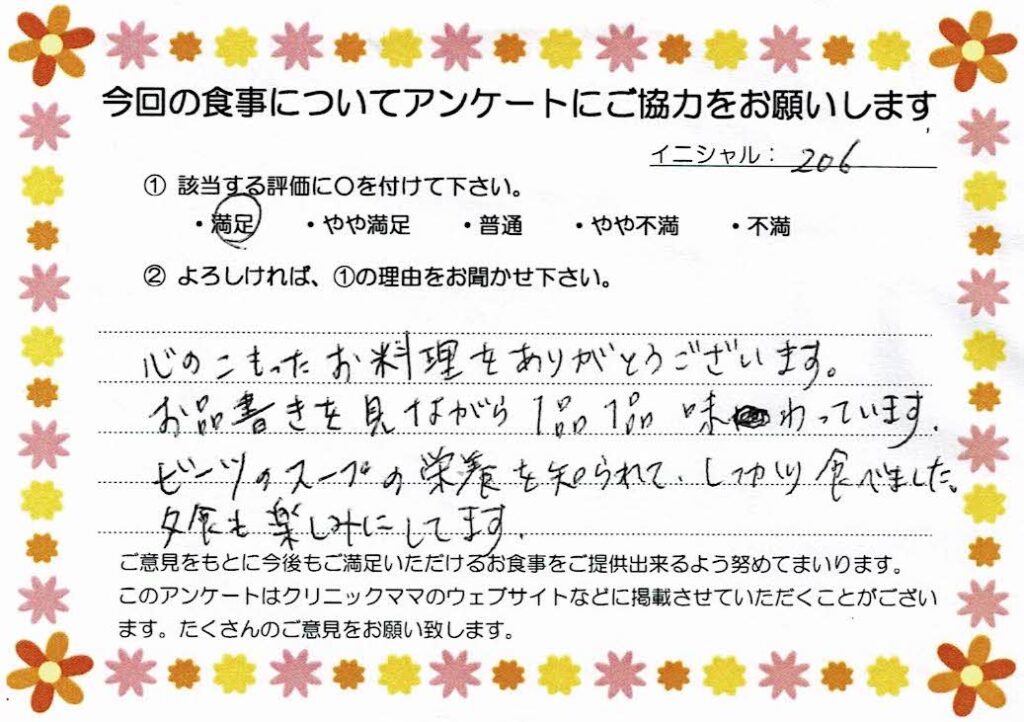 今回の食事についてアンケートにご協力をお願いします
イニシャル： 206
① 該当する評価に〇を付けて下さい。
・満足 ・やや満足 ・普通 ・やや不満 ・不満
② よろしければ、①の理由をお聞かせ下さい。
心のこもったお料理をありがとうございます。
お品書きを見ながら1品1品 味わっています.
ビーツのスープの栄養を知られて、しっかり食べました。
夕食も楽しみにしてます.
ご意見をもとに今後もご満足いただけるお食事をご提供出来るよう努めてまいります。
このアンケートはクリニックママのウェブサイトなどに掲載させていただくことがござい
ます。たくさんのご意見をお願い致します。